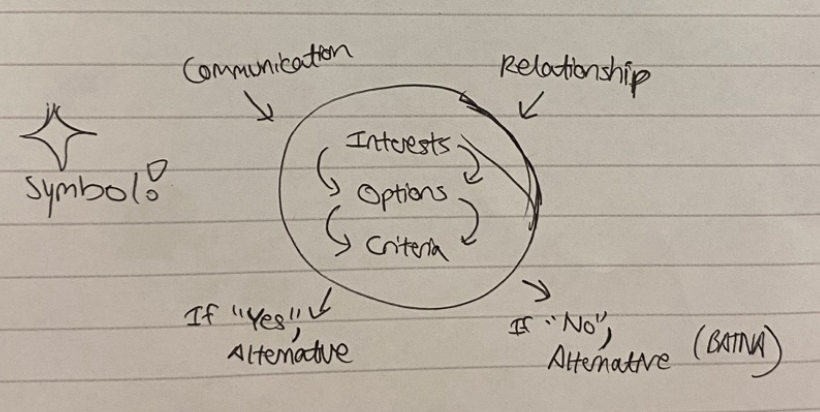 Communication
Relationship
Symbol!
Interests
Options
Criteria
If "Yes",
Alternative
If "No",
Alternative (BATNA)